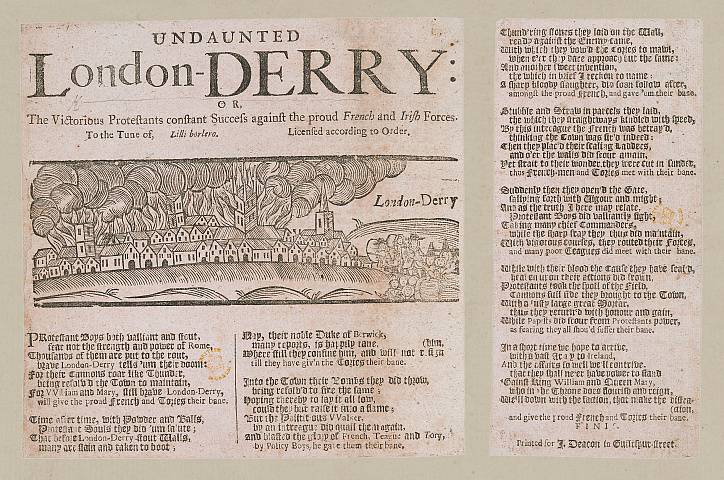 UNDAUNTED
London-DERRY:
OR,
The Victorious Protestants constant Success against the proud French and Irish Forces.
To the Tune of, Lilli borlero. Licensed according to Order.
London-Derry
PRotestant Boys both valliant and stout,
fear not the strength and power of Rome,
Thousands of them are put to the rout,
brave London-Derry tells 'um their doom:
For their Cannons roar like Thunder,
being resolv'd the Town to maintain,
For VVilliam and Mary, still brave London-Derry,
will give the proud French and Tories their bane.
Time after time, with Powder and Balls,
Protestant Souls they did 'um salute;
That before London-Derry stout Walls,
many are slain and taken to boot;
Nay, their noble Duke of Berwick,
many reports, is happily tane,
Where still they confine him, and will not
till they have giv'n the Tories their bane.
Into the Town their Bombs they did throw,
being resolv'd to fire the same;
Hoping thereby to lay it all low,
could they but raise it into a flame;
But the Polititious VValker,
by an intreague did quail them again.
and blasted the glory of French, Teague and Tory,
by Policy Boys, he gave them their bane.
Thund'ring stones they laid on the Wall,
ready against the Enemy came,
With which they vow'd the Tories to mawl,
when e'er they dare approach but the same:
And another sweet invention,
the which in brief I reckon to name:
A sharp bloody slaughter, did soon follow after,
amongst the proud French, and gave 'em their bane.
Stubble and Straw in parcels they laid,
the which they straightways kindled with speed,
By this intreague the French was betray'd,
thinking the Town was fir'd indeed:
Then they plac'd their scaling Ladders,
and o'er the walls did scour amain,
Yet strait to their wonder, they were cut in sunder,
thus French-men and Tories met with their bane.
Suddenly then they open'd the Gate,
sallying forth with Vigour and might;
And as the truth I here may relate,
Protestant Boys did valliantly fight,
Taking many chief Commanders,
while the sharp fray they thus did maintain,
With vigorous courses, they routed their Forces,
and many poor Teagues did meet with their bane.
While with their blood the Cause they have seal'd,
heaven up on their actions did
Protestants took the spoil of the Field,
Cannons full five they brought to the Town,
With a lusty large great Mortar,
thus they return'd with honour and gain,
While Papists did scour from Protestants power,
as fearing they all shou'd suffer their bane.
In a short time we hope to arrive,
with a vast Army to Ireland,
And the affairs so well we'll contrive.
that they shall nere have power to stand
'Gainst King William and Queen Mary,
who in the Throne does flourish and reign,
We'll down with the faction, that make the
and give the proud French and Tories their bane.
FINIS.
Printed for J. Deacon in Guiltspur-street.